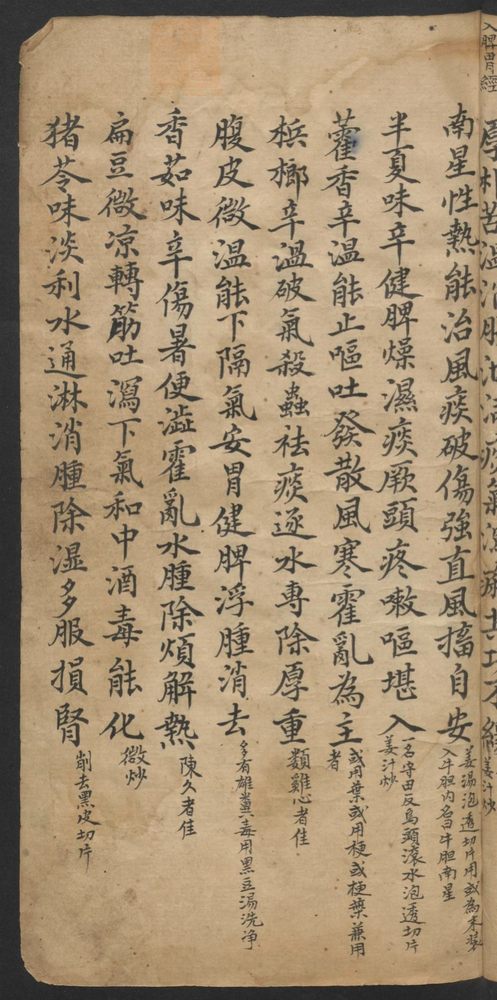 入脾胃經
厚朴苦溫消脹泄滿痰氣瀉痢其功不緩 姜汁炒
南星性熱能治風痰破傷強直風搐自安 姜湯泡透切片用或為末裝
入牛胆內名曰牛胆南星
半夏味辛健脾燥濕痰厥頭疼嗽嘔堪入 一名守田反烏頭滾水泡透切片
姜汁炒
藿香辛溫能止嘔吐發散風寒霍亂為主 或用葉或用梗或梗葉兼用
者
梹榔辛溫破氣殺蟲祛痰逐水專除厚重 類雞心者佳
腹皮微溫能下隔氣安胃健脾浮腫消去 多有雄糞毒用黑豆湯洗淨
香茹味辛傷暑便澁霍亂水腫除煩解熱 陳久者佳
扁豆微凉轉筋吐瀉下氣和中酒毒能化 微炒
猪苓味淡利水通淋消腫除湿多服損腎 削去黑皮切片